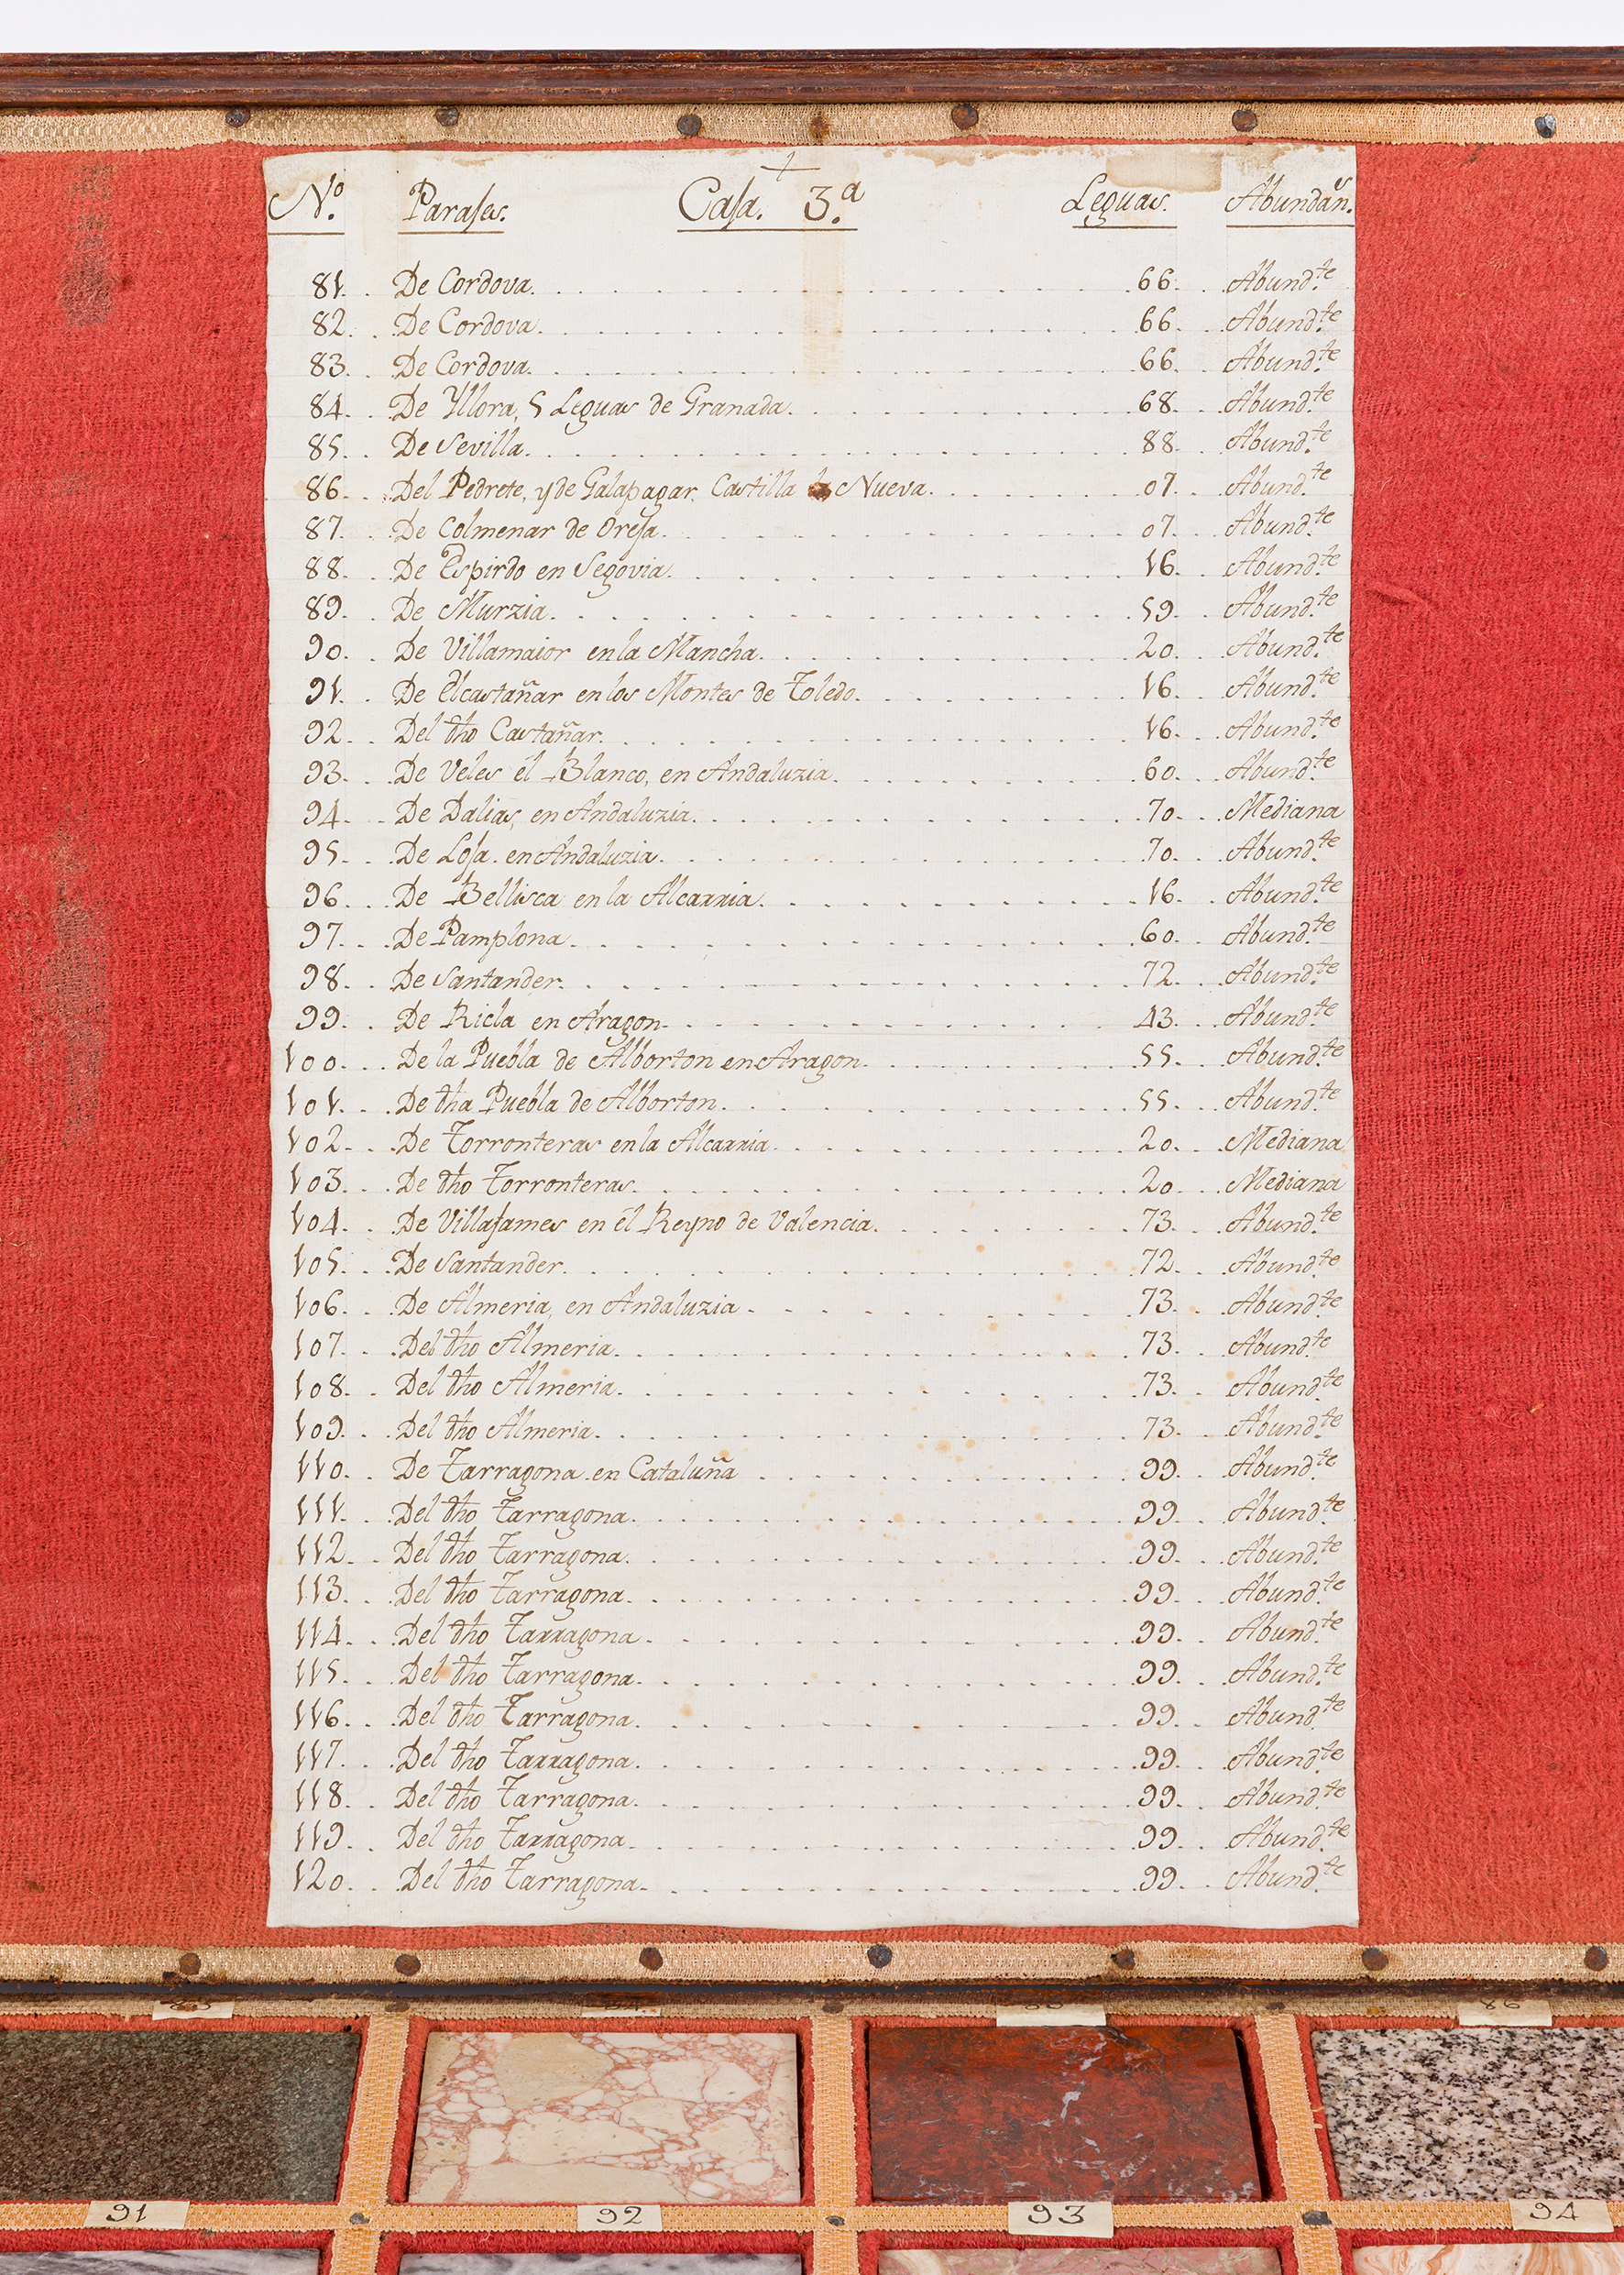 N.º Parajes. Caja. 3.ª Leguas. Abundãn.s
81. De Cordova. 66. Abund.te
82. De Cordova. 66. Abund.te
83. De Cordova. 66. Abund.te
84. De Yllora, 5 Leguas de Granada. 68. Abund.te
85. De Sevilla. 88. Abund.te
86. Del Pedrete, y de Galapagar. Castilla la Nueva. 07. Abund.te
87. De Colmenar de Oreja. 07. Abund.te
88. De Espirdo en Segovia. 16. Abund.te
89. De Murzia. 59. Abund.te
90. De Villamaior en la Mancha. 20. Abund.te
91. De Elcastañar en los Montes de Toledo. 16. Abund.te
92. Del dho Castañar. 16. Abund.te
93. De Veles él Blanco, en Andaluzia. 60. Abund.te
94. De Dalias, en Andaluzia. 70. Mediana
95. De Loja. en Andaluzia. 70. Abund.te
96. De Bellisca en la Alcarria. 16. Abund.te
97. De Pamplona. 60. Abund.te
98. De Santander. 72. Abund.te
99. De Ricla en Aragon. 43. Abund.te
100. De la Puebla de Alborton en Aragon. 55. Abund.te
101. De dha Puebla de Alborton. 55. Abund.te
102. De Torronteras en la Alcarria. 20. Mediana
103. De dho Torronteras. 20. Mediana
104. De Villafames en él Reyno de Valencia. 73. Abund.te
105. De Santander. 72. Abund.te
106. De Almeria, en Andaluzia. 73. Abund.te
107. Del dho Almeria. 73. Abund.te
108. Del dho Almeria. 73. Abund.te
109. Del dho Almeria. 73. Abund.te
110. De Tarragona en Cataluña 99. Abund.te
111. Del dho Tarragona. 99. Abund.te
112. Del dho Tarragona. 99. Abund.te
113. Del dho Tarragona. 99. Abund.te
114. Del dho Tarragona. 99. Abund.te
115. Del dho Tarragona. 99. Abund.te
116. Del dho Tarragona. 99. Abund.te
117. Del dho Tarragona. 99. Abund.te
118. Del dho Tarragona. 99. Abund.te
119. Del dho Tarragona. 99. Abund.te
120. Del dho Tarragona. 99. Abund.te
86
91 92 93 94